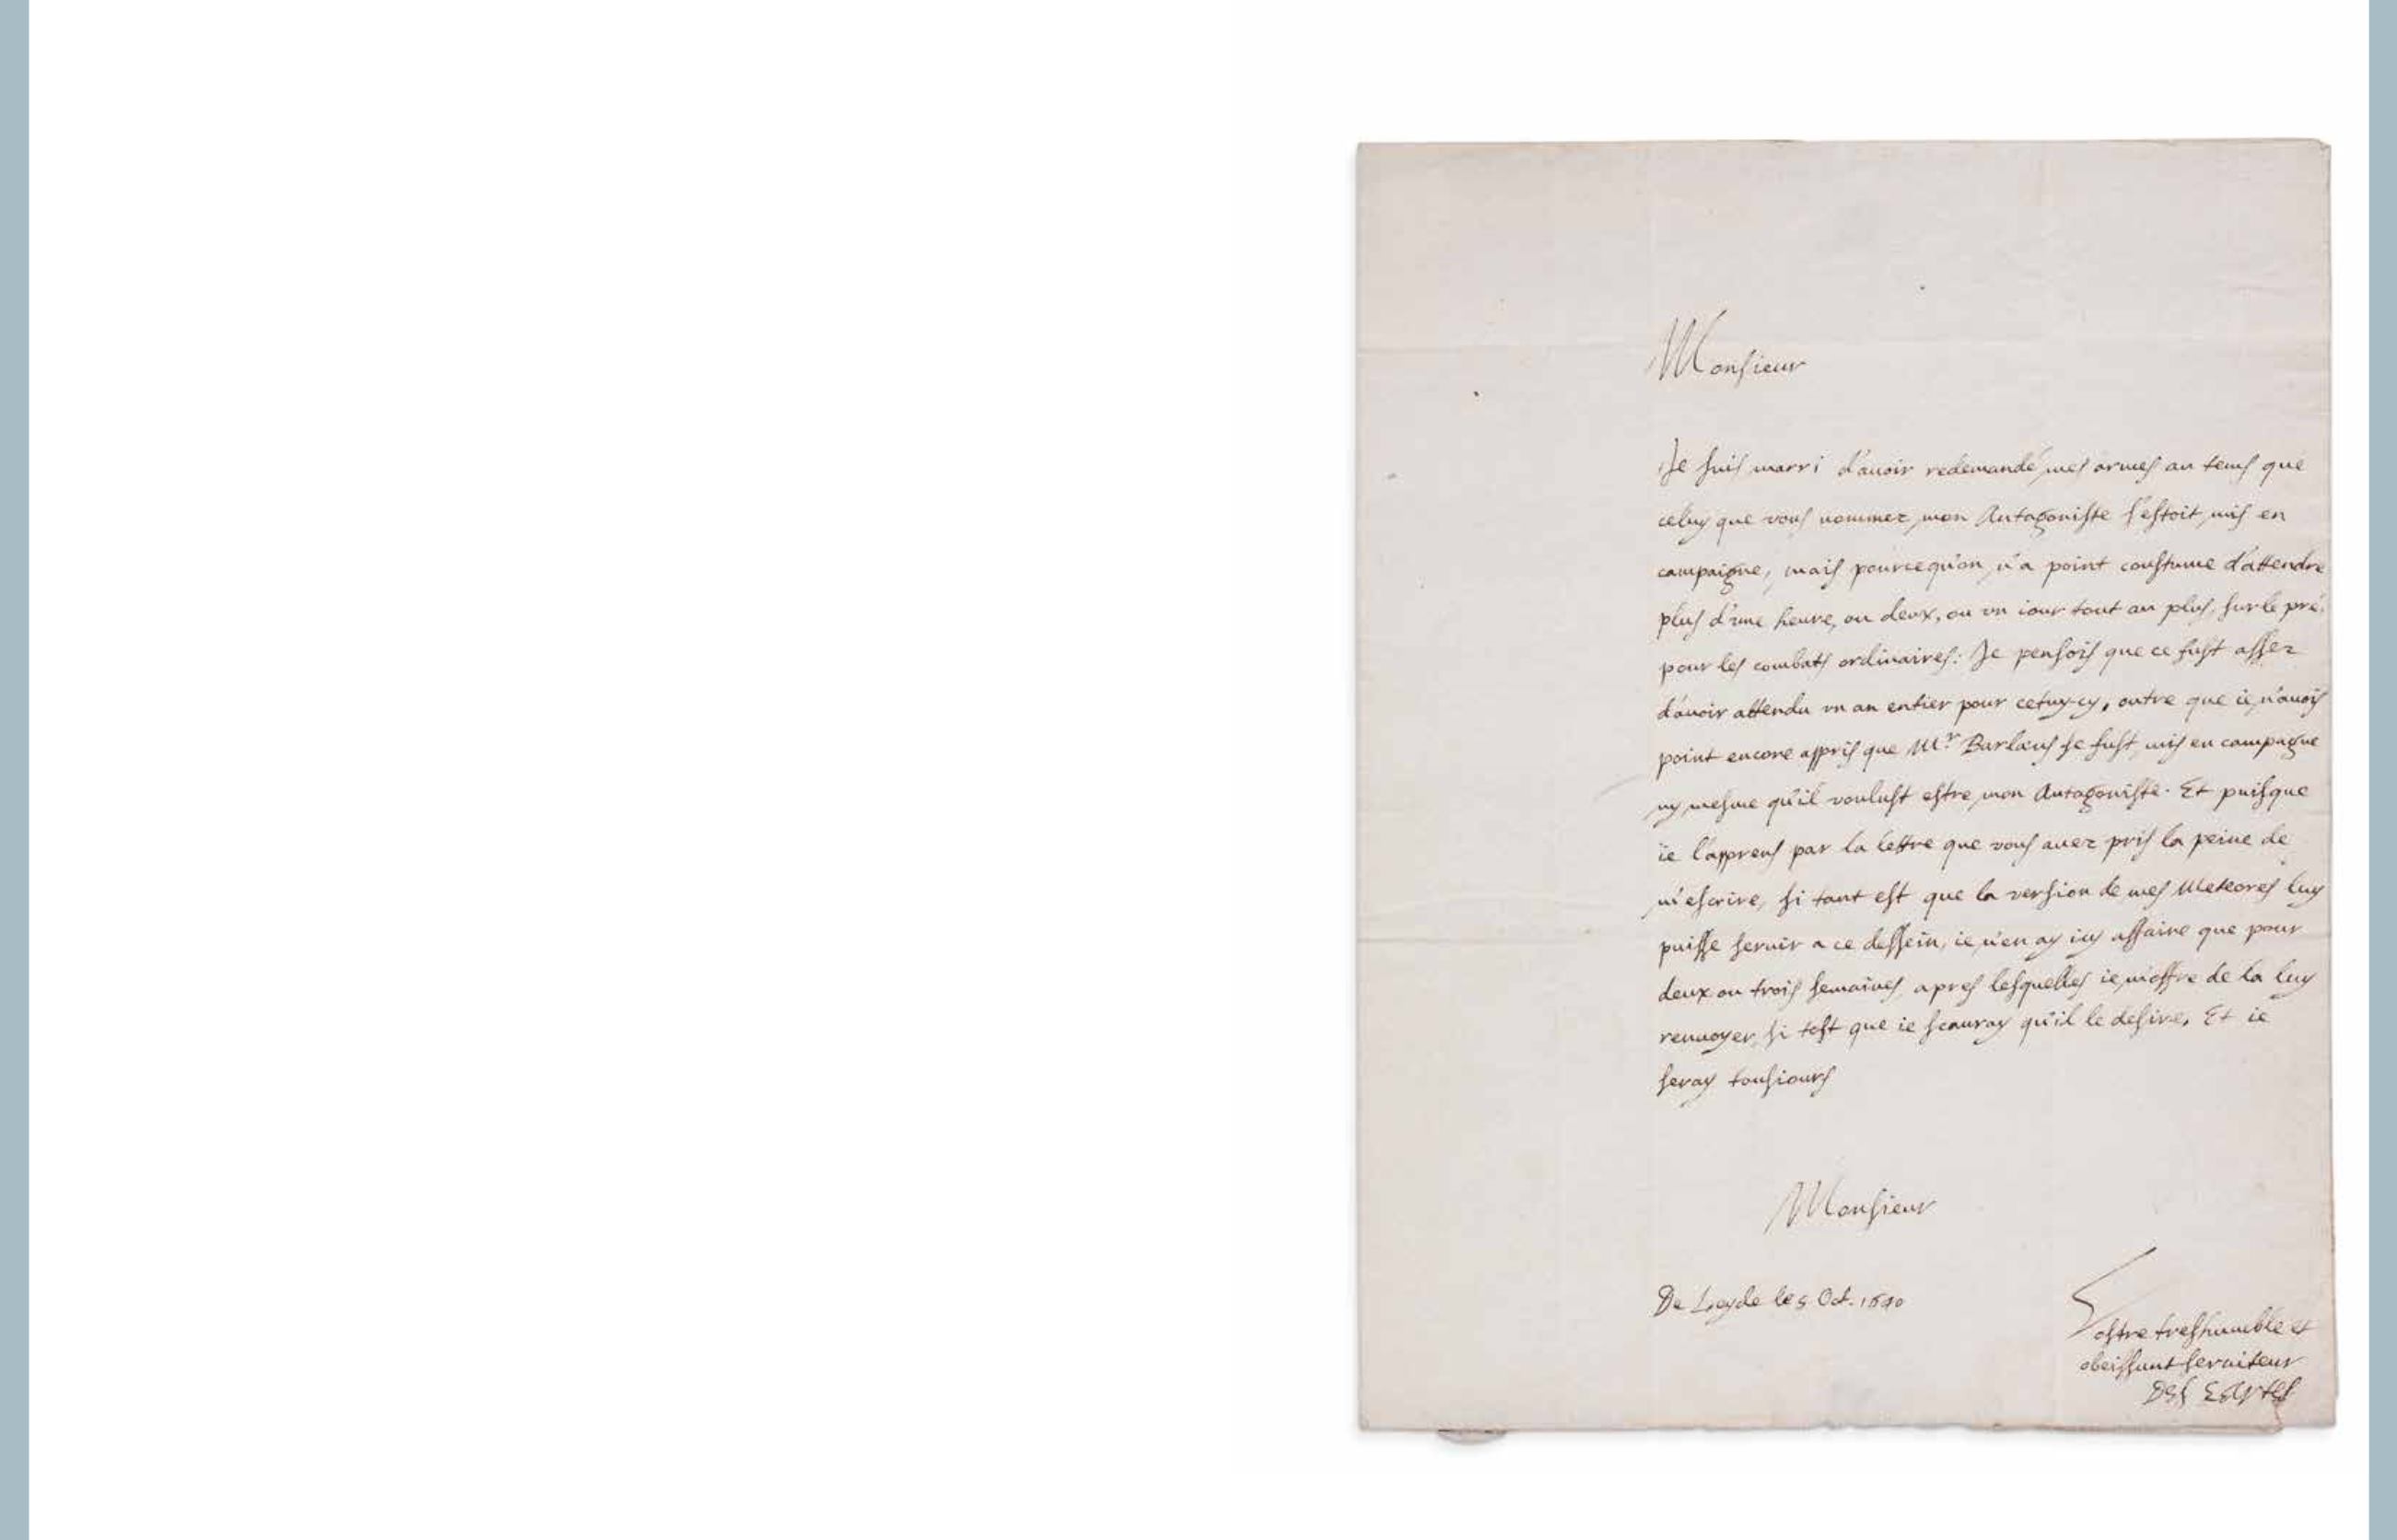 Monsieur
Je suis marri d'auoir redemandé mes armes au tems que
celuy que vous nommez mon Antagoniste s'estoit mis en
campaigne, mais pourcequ'on n'a point coustume d'attendre
plus d'une heure, ou deux, ou vn iour tout au plus, sur le pré,
pour les combats ordinaires: Je pensois que ce fust assez
d'auoir attendu vn an entier pour cetuy-cy, outre que ie n'auois
point encore appris que Mr. Barlæus se fust mis en campagne
ny mesme qu'il voulust estre mon Antagoniste. Et puisque
ie l'apprens par la lettre que vous auez pris la peine de
m'escrire, si tant est que la version de mes Meteores luy
puisse seruir a ce dessein, ie n'en ay icy affaire que pour
deux ou trois semaines, apres lesquelles ie m'offre de la luy
renuoyer si tost que ie scauray qu'il le desire. Et ie
seray tousiours
Monsieur
De Leyde le 5 Oct. 1640
Vostre treshumble et
obeissant seruiteur
Des Cartes